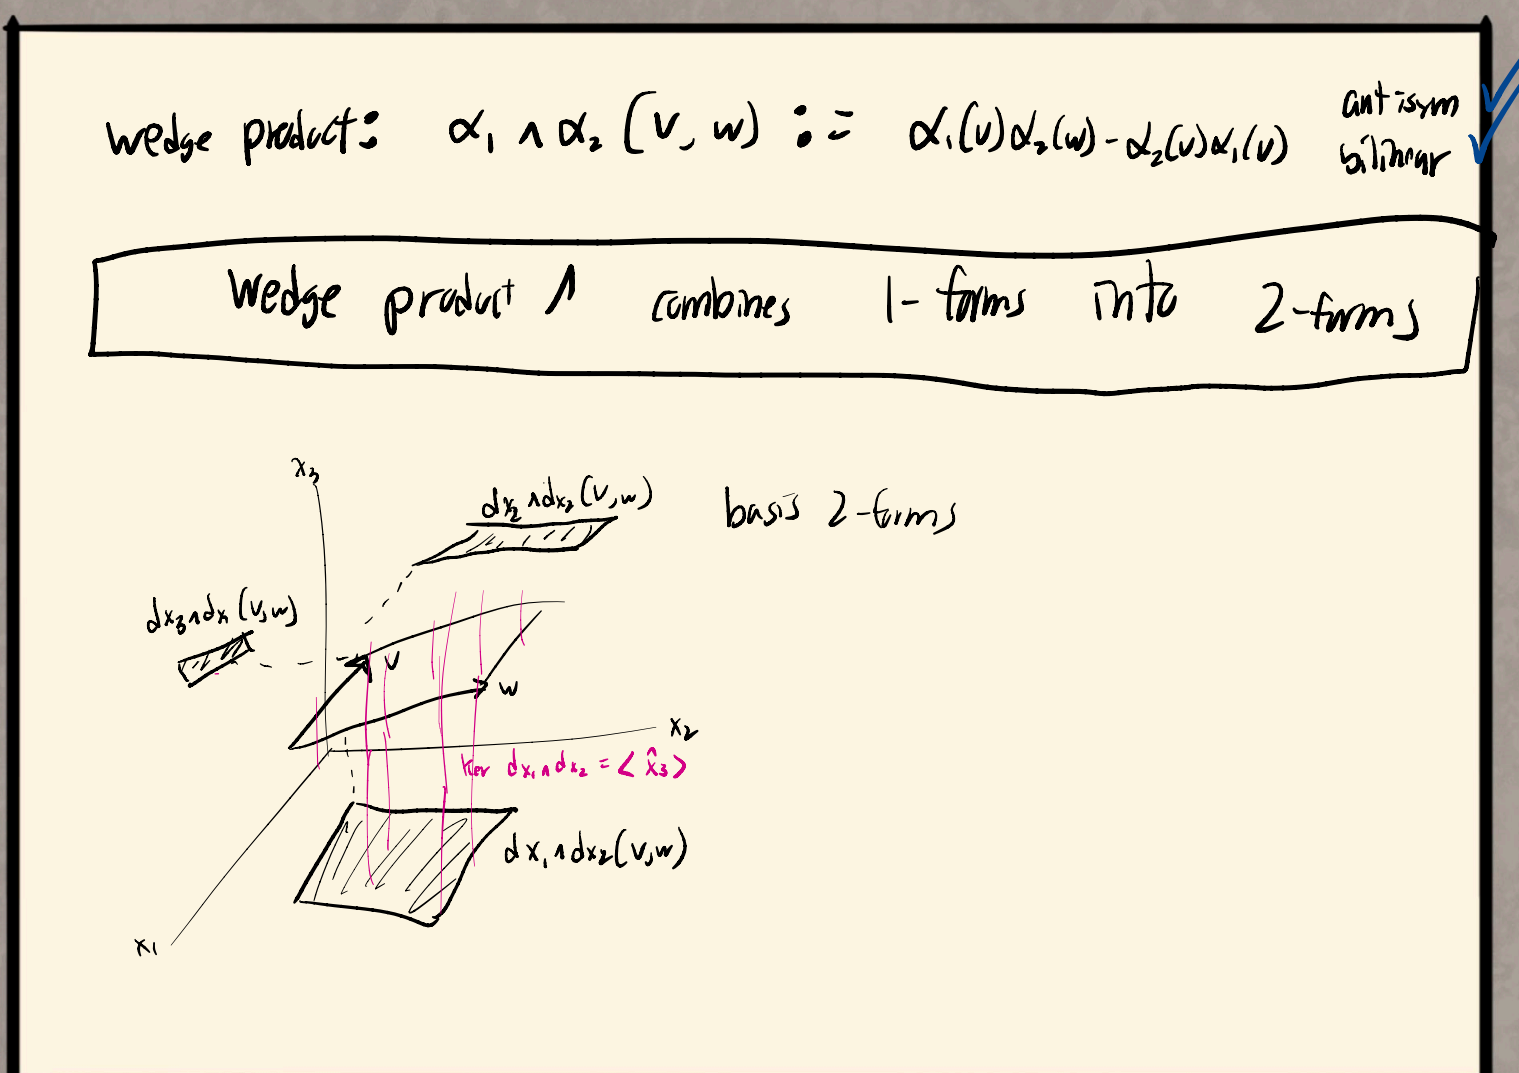 wedge product: α₁ ∧ α₂ (v, w) := α₁(v)α₂(w) - α₂(v)α₁(v) antisym
bilinear
Wedge product ∧ combines 1-forms into 2-forms
x₃
dx₂ ∧ dx₂ (v, w) basis 2-forms
dx₃ ∧ dx₁ (v, w)
v
w
x₂
ker dx₁ ∧ dx₂ = < x̂₃ >
dx₁ ∧ dx₂ (v, w)
x₁